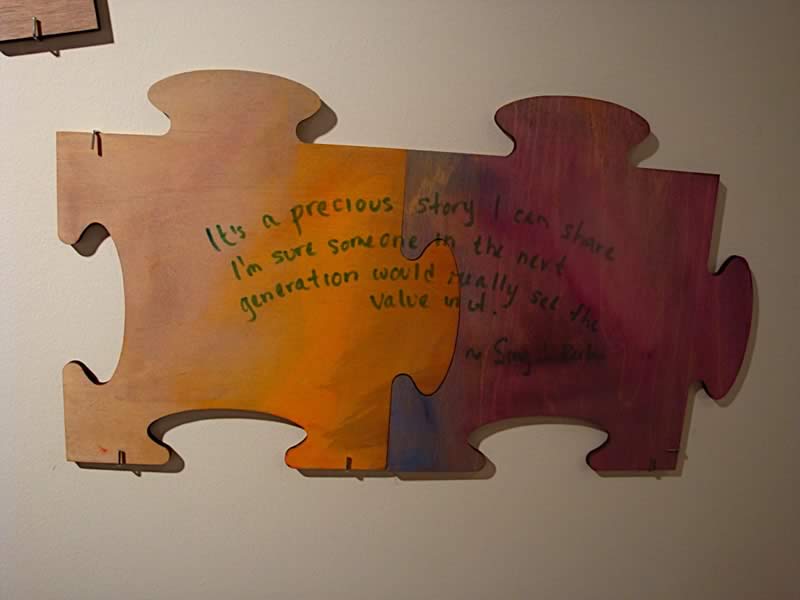 It's a precious story I can share
I'm sure someone in the next
generation would really see the
value in it.
~